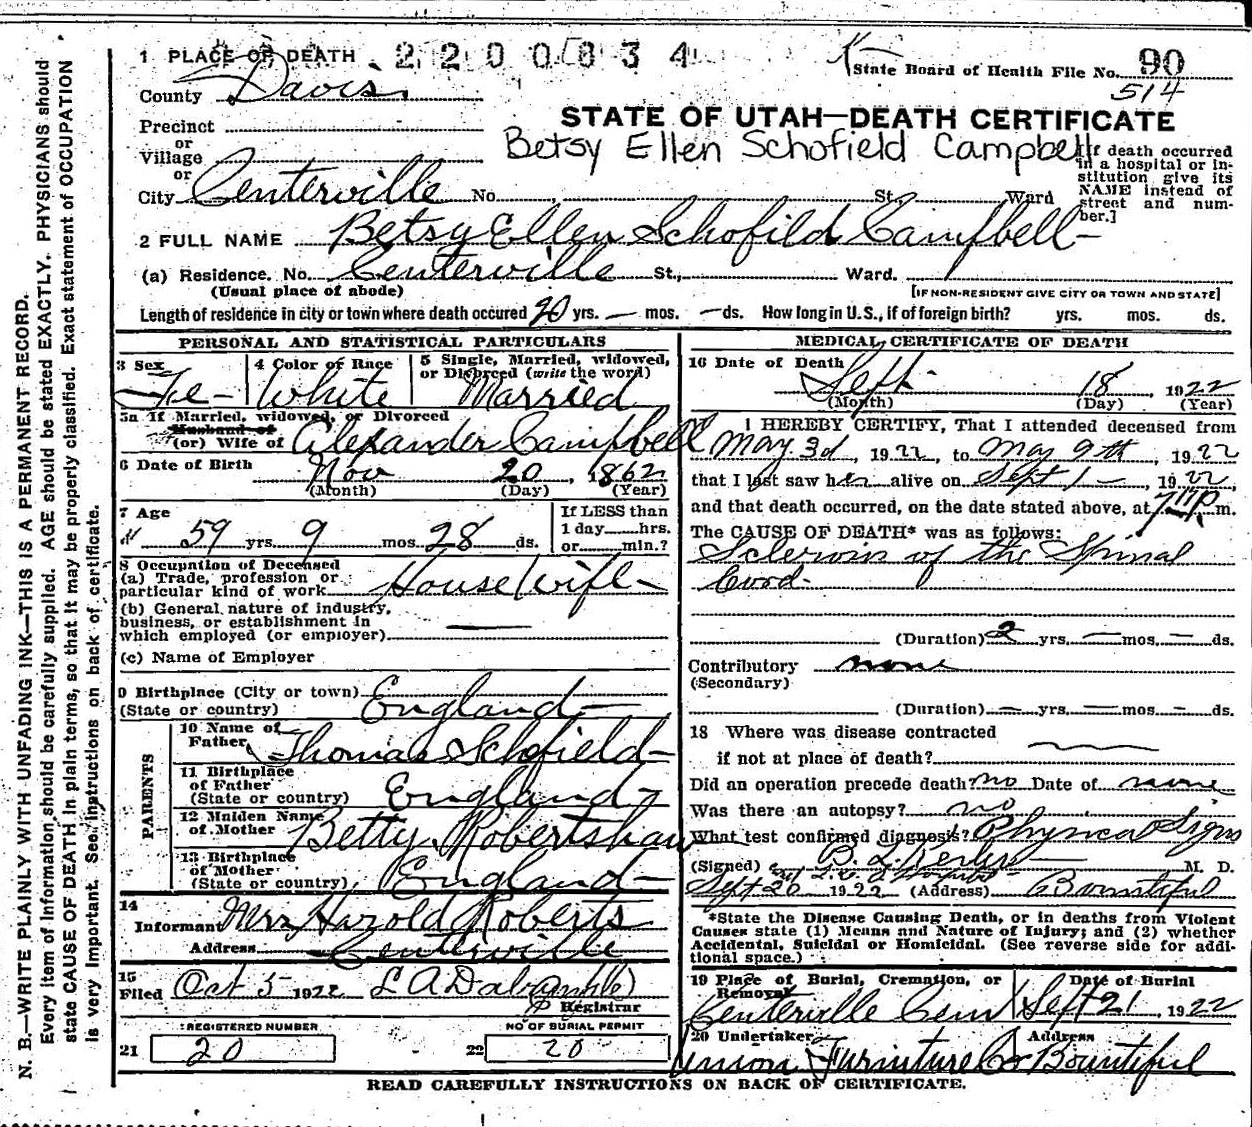 N. B.—WRITE PLAINLY WITH UNFADING INK—THIS IS A PERMANENT RECORD.
Every item of Information should be carefully supplied. AGE should be stated EXACTLY. PHYSICIANS should
state CAUSE OF DEATH in plain terms, so that it may be properly classified. Exact statement of OCCUPATION
is very Important. See Instructions on back of certificate.
1 PLACE OF DEATH 2200834
State Board of Health File No. 90
514
County Davis
STATE OF UTAH—DEATH CERTIFICATE
Precinct
or
Village
Betsy Ellen Schofield Campbell
[If death occurred
in a hospital or in-
stitution give its
NAME instead of
street and num-
ber.]
or
City Centerville No. St. Ward
2 FULL NAME Betsy Ellen Schofild Campbell
(a) Residence. No. Centerville St., Ward.
(Usual place of abode) [IF NON-RESIDENT GIVE CITY OR TOWN AND STATE]
Length of residence in city or town where death occured yrs. — mos. — ds. How long in U.S., if of foreign birth? yrs. mos. ds.
PERSONAL AND STATISTICAL PARTICULARS
3 Sex Fe- 4 Color or Race White 5 Single, Married, widowed,
or Divorced (write the word) Married
5a If Married, widowed, or Divorced
Husband of
(or) Wife of Alexander Campbell
6 Date of Birth Nov 20, 1862
(Month) (Day) (Year)
7 Age 59 yrs. 9 mos. 28 ds. If LESS than
1 day hrs.
or min.?
8 Occupation of Deceased
(a) Trade, profession or
particular kind of work House Wife
(b) General nature of industry,
business, or establishment in
which employed (or employer) —
(c) Name of Employer
9 Birthplace (City or town)
(State or country) England
PARENTS
10 Name of
Father Thomas Schofield
11 Birthplace
of Father
(State or country) England
12 Maiden Name
of Mother Betty Robertshaw
13 Birthplace
of Mother
(State or country) England
14
Informant Mrs Harold Roberts
Address Centerville
15
Filed Oct 5 1922 L A
Registrar
REGISTERED NUMBER NO OF BURIAL PERMIT
21 20 22 20
MEDICAL CERTIFICATE OF DEATH
16 Date of Death
Sept 18, 1922
(Month) (Day) (Year)
I HEREBY CERTIFY, That I attended deceased from
May 3d, 1922, to May 9th, 1922
that I last saw her alive on Sept 1 —, 1922,
and that death occurred, on the date stated above, at m.
The CAUSE OF DEATH* was as follows:
Sclerosis of the Spinal
Cord-
(Duration) 2 yrs. — mos. — ds.
Contributory none
(Secondary)
(Duration) — yrs. — mos. — ds.
18 Where was disease contracted
if not at place of death?
Did an operation precede death? no Date of none
Was there an autopsy? no
What test confirmed diagnosis? Physical Signs
(Signed) B. L. M. D.
Sept 20 1922 (Address) Bountiful
*State the Disease Causing Death, or in deaths from Violent
Causes state (1) Means and Nature of Injury; and (2) whether
Accidental, Suicidal or Homicidal. (See reverse side for addi-
tional space.)
19 Place of Burial, Cremation, or
Removal
Date of Burial
Centerville Cem Sept 21, 1922
20 Undertaker Address
Union Furniture Co Bountiful
READ CAREFULLY INSTRUCTIONS ON BACK OF CERTIFICATE.